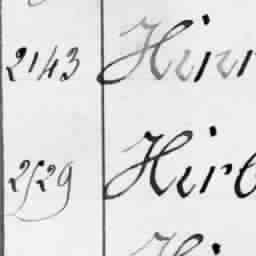 2143 Hinr
2529 Hirb